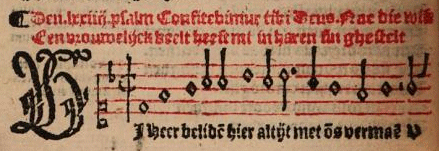 Den. lxxiiij. psalm Confitebimur tibi Deus. Nae die wise
Een vrouwelijck beelt heeft mi in haren sin ghestelt
I Heer belidẽ hier altijt met õs vermaẽ v